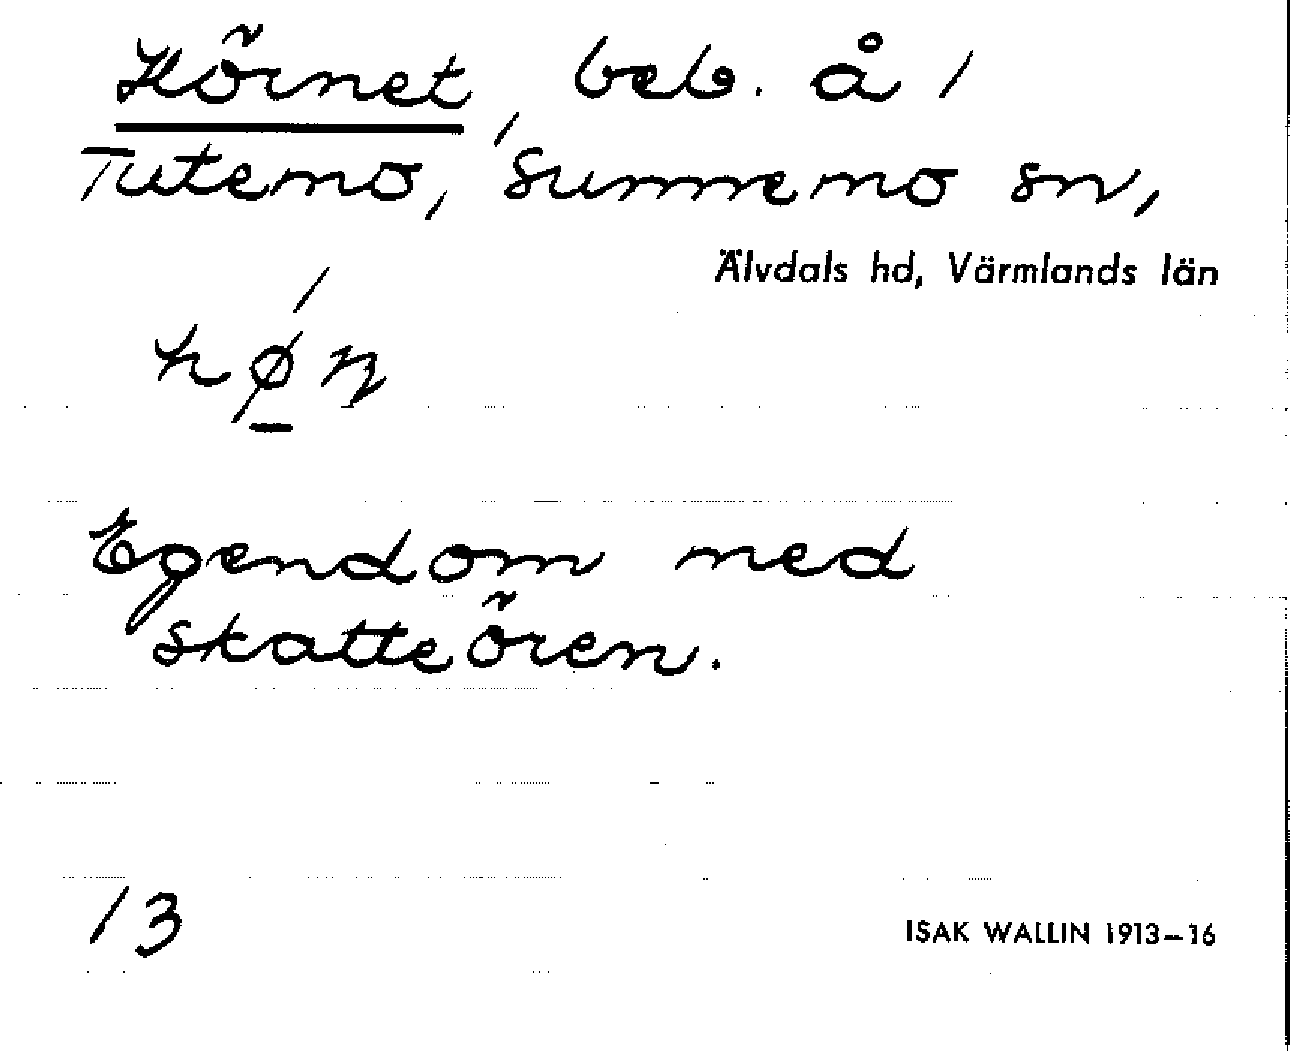 Hörnet, beb. å 1
Tutemo, Sunnemo sn,
Älvdals hd, Värmlands län
Egendom med
skatteören.
13
ISAK WALLIN 1913–16